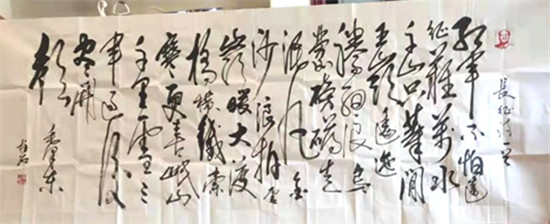 長征詩一首
紅軍不怕遠
征難萬水
千山只等閒
五嶺逶迤
騰細浪烏
蒙磅礴走
泥丸金
沙浪拍雲
崖暖大渡
橋橫鐵索
寒更喜岷山
千里雪三
軍過後
盡開
顏
毛澤東